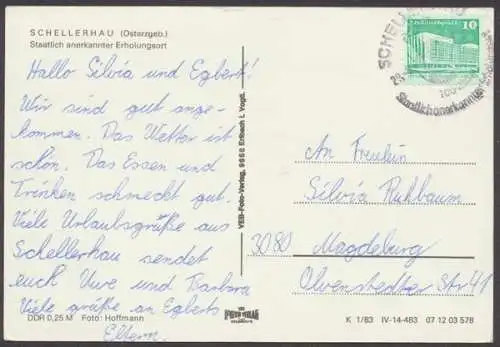 SCHELLERHAU (Osterzgeb.)
Staatlich anerkannter Erholungsort
Hallo Silvia und Egbert!
Wir sind gut ange-
kommen. Das Wetter ist
schön. Das Essen und
Trinken schmeckt gut.
Viele Urlaubsgrüße aus
Schellerhau sendet
euch Uwe und Barbara
Viele grüße an Egberts
Eltern.
DDR 0,25 M Foto: Hoffmann
VEB-Foto-Verlag, 9658 Erlbach i. Vogtl.
FOTO VERLAG
K 1/83 IV-14-483 07 12 03 578
SCHELLERHAU
Staatlich anerkannter
10
An Freulein
Silvia Ruhbaum
3080 Magdeburg
Olvenstedter Str 41